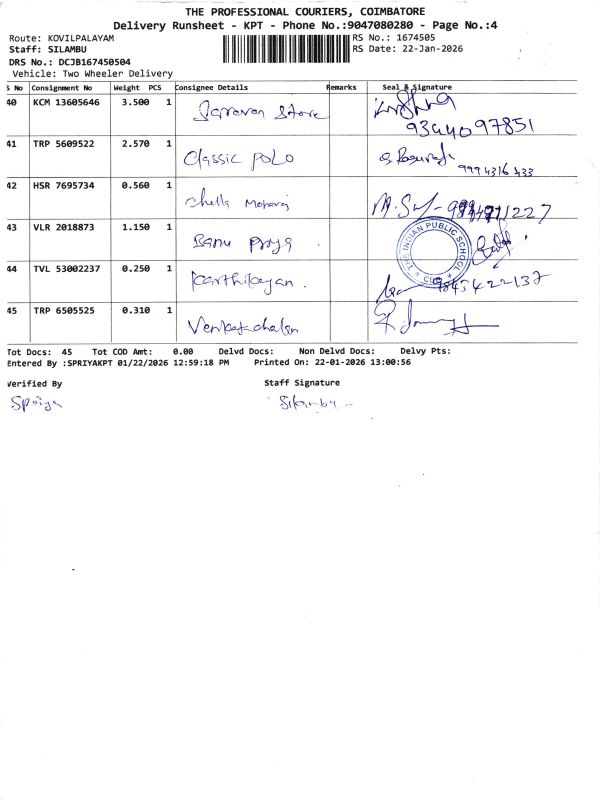 THE PROFESSIONAL COURIERS, COIMBATORE
Delivery Runsheet - KPT - Phone No.:9047080280 - Page No.:4
Route: KOVILPALAYAM RS No.: 1674505
Staff: SILAMBU RS Date: 22-Jan-2026
DRS No.: DCJB167450504
Vehicle: Two Wheeler Delivery
S No Consignment No Weight PCS Consignee Details Remarks Seal & Signature
40 KCM 13605646 3.500 1 Store
9344097851
41 TRP 5609522 2.570 1 Classic POLO
42 HSR 7695734 0.560 1 Chella
43 VLR 2018873 1.150 1 Banu Priya
THE INDIAN PUBLIC SCHOOL
44 TVL 53002237 0.250 1 Karthikeyan. 9843422137
45 TRP 6505525 0.310 1 Venkatachalam
Tot Docs: 45 Tot COD Amt: 0.00 Delvd Docs: Non Delvd Docs: Delvy Pts:
Entered By :SPRIYAKPT 01/22/2026 12:59:18 PM Printed On: 22-01-2026 13:00:56
Verified By Staff Signature
Spriya Silambu